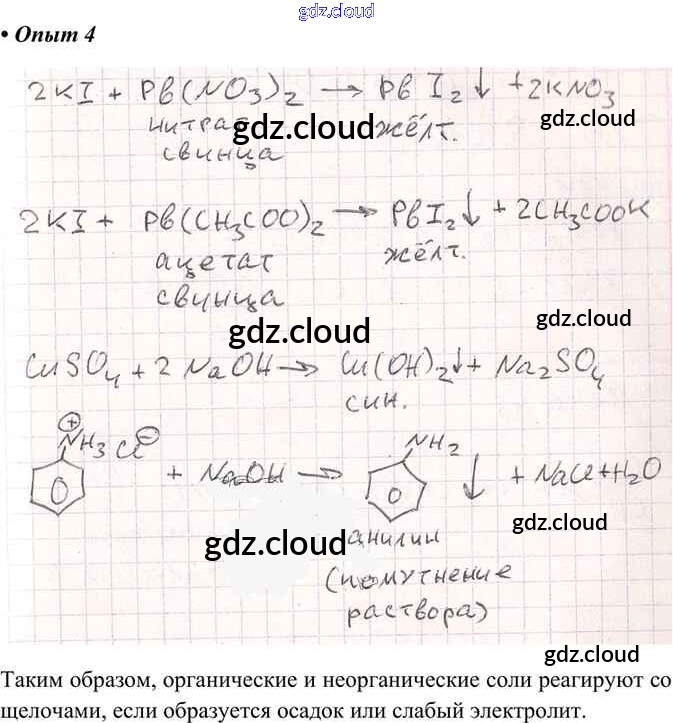 gdz.cloud
• Опыт 4
2KI + Pb(NO₃)₂ → PbI₂↓ + 2KNO₃
нитрат жёлт.
свинца
gdz.cloud
gdz.cloud
2KI + Pb(CH₃COO)₂ → PbI₂↓ + 2CH₃COOK
ацетат жёлт.
свинца
gdz.cloud
gdz.cloud
CuSO₄ + 2NaOH → Cu(OH)₂↓ + Na₂SO₄
син.
⊕
NH₃ Cl⊖ + NaOH → NH₂ ↓ + NaCl + H₂O
gdz.cloud
gdz.cloud
анилин
(помутнение
раствора)
gdz.cloud
Таким образом, органические и неорганические соли реагируют со
щелочами, если образуется осадок или слабый электролит.